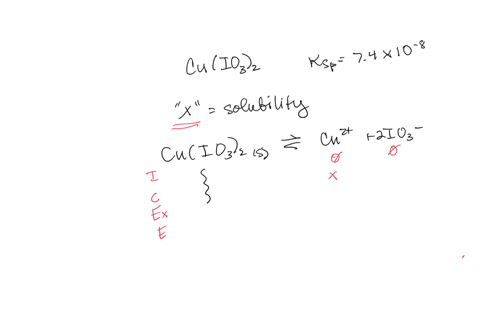 Cu(IO₃)₂ Ksp = 7.4 × 10⁻⁸
"x" = solubility
Cu(IO₃)₂ (s) ⇌ Cu²⁺ + 2IO₃⁻
I ∅ ∅
C x
Ex
E